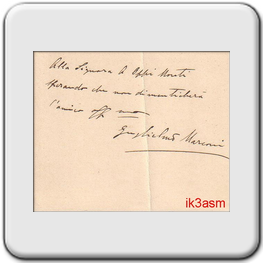 Alla Signora A Oppi Monti
sperando che non dimenticherà
l'amico aff mo
Guglielmo Marconi
ik3asm